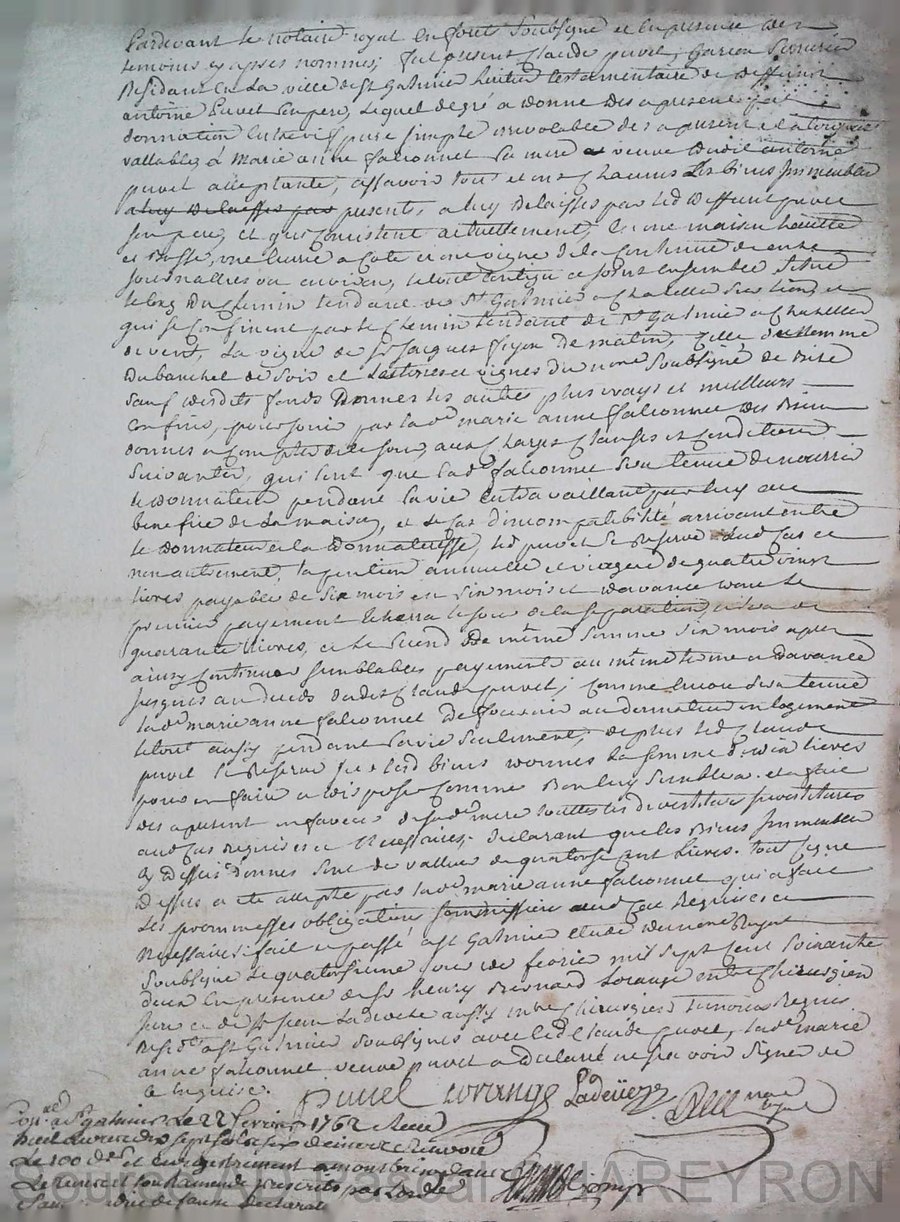 Pardevant le notaire royal en forest soubsigné et en presence des
temoins cy apres nommes, fut present Claude puvel, garcon serrurier
Residant en la ville de St Galmier heritier testamentaire de deffunt
antoine puvel son pere, lequel de gré a donné des a present fait
donnation entre vifs pure simple irrevocable des a present et a toujours
vallable, a Marie anne falconnet sa mere veuve dudit antoine
puvel acceptante, assavoir tous et uns chacuns les biens immeubles
a luy delaisses par presents, a luy delaisses par led deffunt puvel
son pere, et qui consistent actuellement, en une maison haute
et basse, une ecurie a cote et une vigne de la contenue de onze
journallees ou environ, le tout contigu et joint ensemble situé
le long du chemin tendant de St Galmier a Chazelles sur lion, et
qui se confinent par le chemin tendant de St Galmier a Chazelles
de vent, la vigne de Sr Jacques de matin, celle
de soir et les terres et vignes du no.re soubsigné de bise
sauf desdits fonds donnes les autres plus vrays et meilleurs
confins, pour jouir par lad.e marie anne falconnet des biens
donnes a compter de ce jour, aux charges clauses et conditions
suivantes, qui sont que lad.e falconnet sera tenue de nourrir
le donnateur pendant sa vie en travaillant par luy au
benefice de la maison, et le cas d'incompatibilité arrivant entre
le donnateur et la donnatresse, led puvel se reserve aud cas et
non autrement, la pention annuelle et viagere de quatre vingt
livres payable de six mois en six mois et d'avance dont le
premier payement echerra le jour de la separation, sera de
quarante livres, et le second de même somme six mois apres
ainsy continuer semblables payements au même terme et d'avance
jusques au deceds dudit Claude puvel, comme encore sera tenue
lad.e marie anne falconnet de fournir au donnateur un logement
le tout aussy pendant sa vie seulement, de plus led Claude
puvel se reserve sur lesd biens donnes la somme de livres
pour en faire et disposer comme bon luy semblera, et a fait
des a present en faveur de sad.e mere touttes les devestitures investitures
aud cas requises et necessaires. declarant que les biens immeubles
cy dessus donnes sont de valleur de quatorze cent livres. tout ce que
dessus a eté accepté par lad.e marie anne falconnet qui a fait
les promesses obligations soumissions aud cas requises et
necessaires, fait et passé a St Galmier etude du no.re royal
soubsigne le quatorzieme jour de fevrier mil sept cent soixante
deux en presence de Sr henry Bernard Lorange m.tre Chirurgien
juré et de Sr jean Ladevèze aussy m.tre Chirurgien temoins requis
resid.t a St Galmier soubsignes avec led Claude puvel, lad.e marie
anne falconnet veuve puvel a declaré ne sca voir signer de
ce enquise.
puvel Lorange Ladevèze
Con.lé a St galmier le 22 fevrier 1762 Recu
le 100.e d.er et enregistrement a montbrison dans
Pascal CHAREYRON